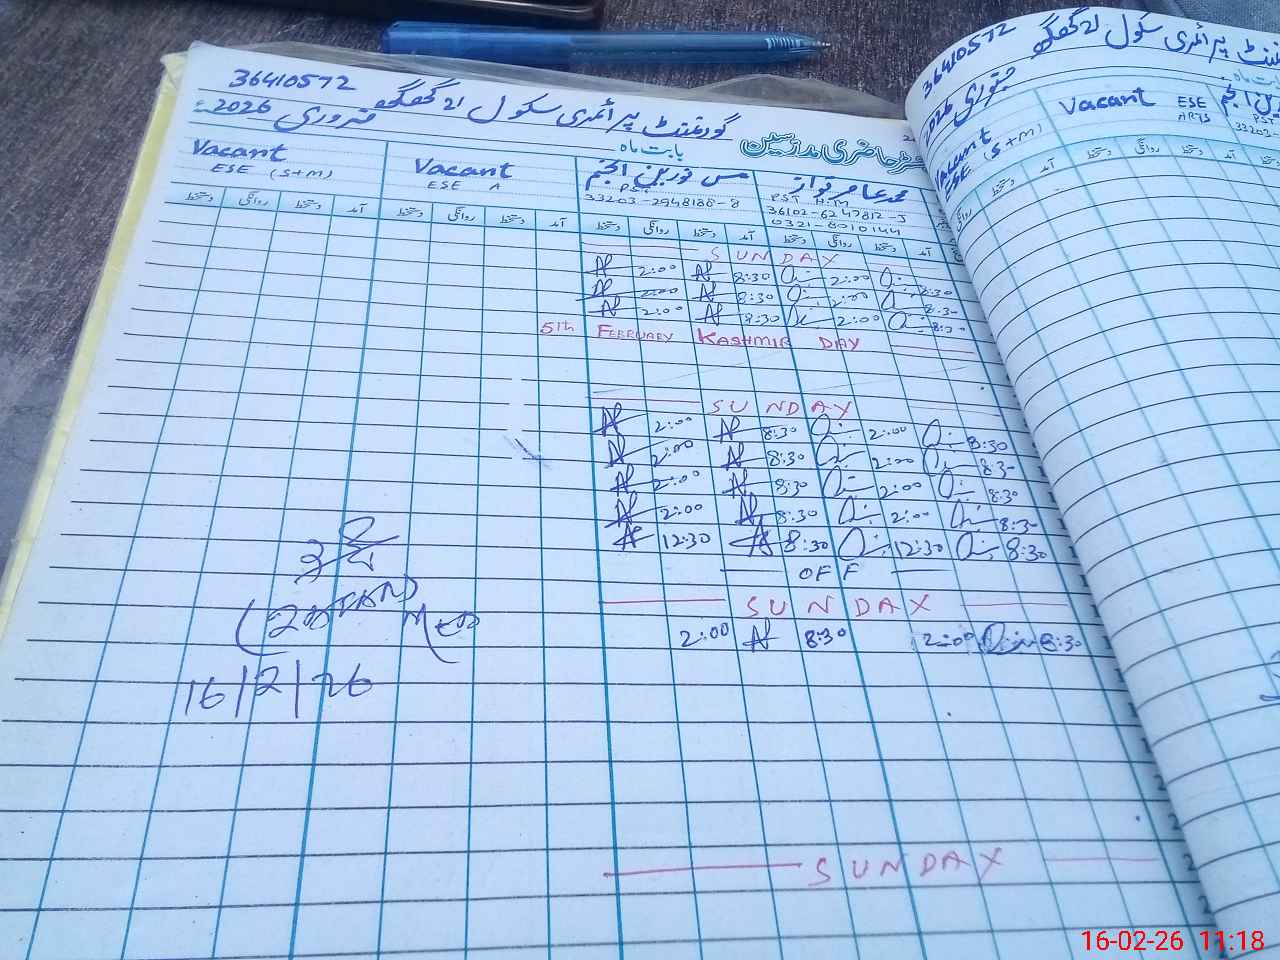 36410572
گورنمنٹ پرائمری سکول 21 گھگھ فروری 2026ء
رجسٹر حاضری مدرسین بابت ماہ
Vacant
ESE (S+M)
Vacant
ESE A
مس نورین انجم
PST
33203-2948188-8
محمد عامر نواز
PST H.M
36102-6247812-5
0321-8010144
دستخط روانگی دستخط آمد دستخط روانگی دستخط آمد دستخط روانگی دستخط آمد دستخط روانگی دستخط آمد
SUNDAY
2:00 8:30 2:00 8:30
2:00 8:30 2:00 8:30
2:00 8:30 2:00 8:30
5th FEBRUARY KASHMIR DAY
SUNDAY
2:00 8:30 2:00 8:30
2:00 8:30 2:00 8:30
2:00 8:30 2:00 8:30
2:00 8:30 2:00 8:30
12:30 8:30 12:30 8:30
OFF
SUNDAY
2:00 8:30 2:00 8:30
16/2/26
SUNDAY
36410572
پرائمری سکول 21 گھگھ
جنوری 2026
Vacant
ESE (S+M)
Vacant ESE
ARTS
PST
33203-
16-02-26 11:18